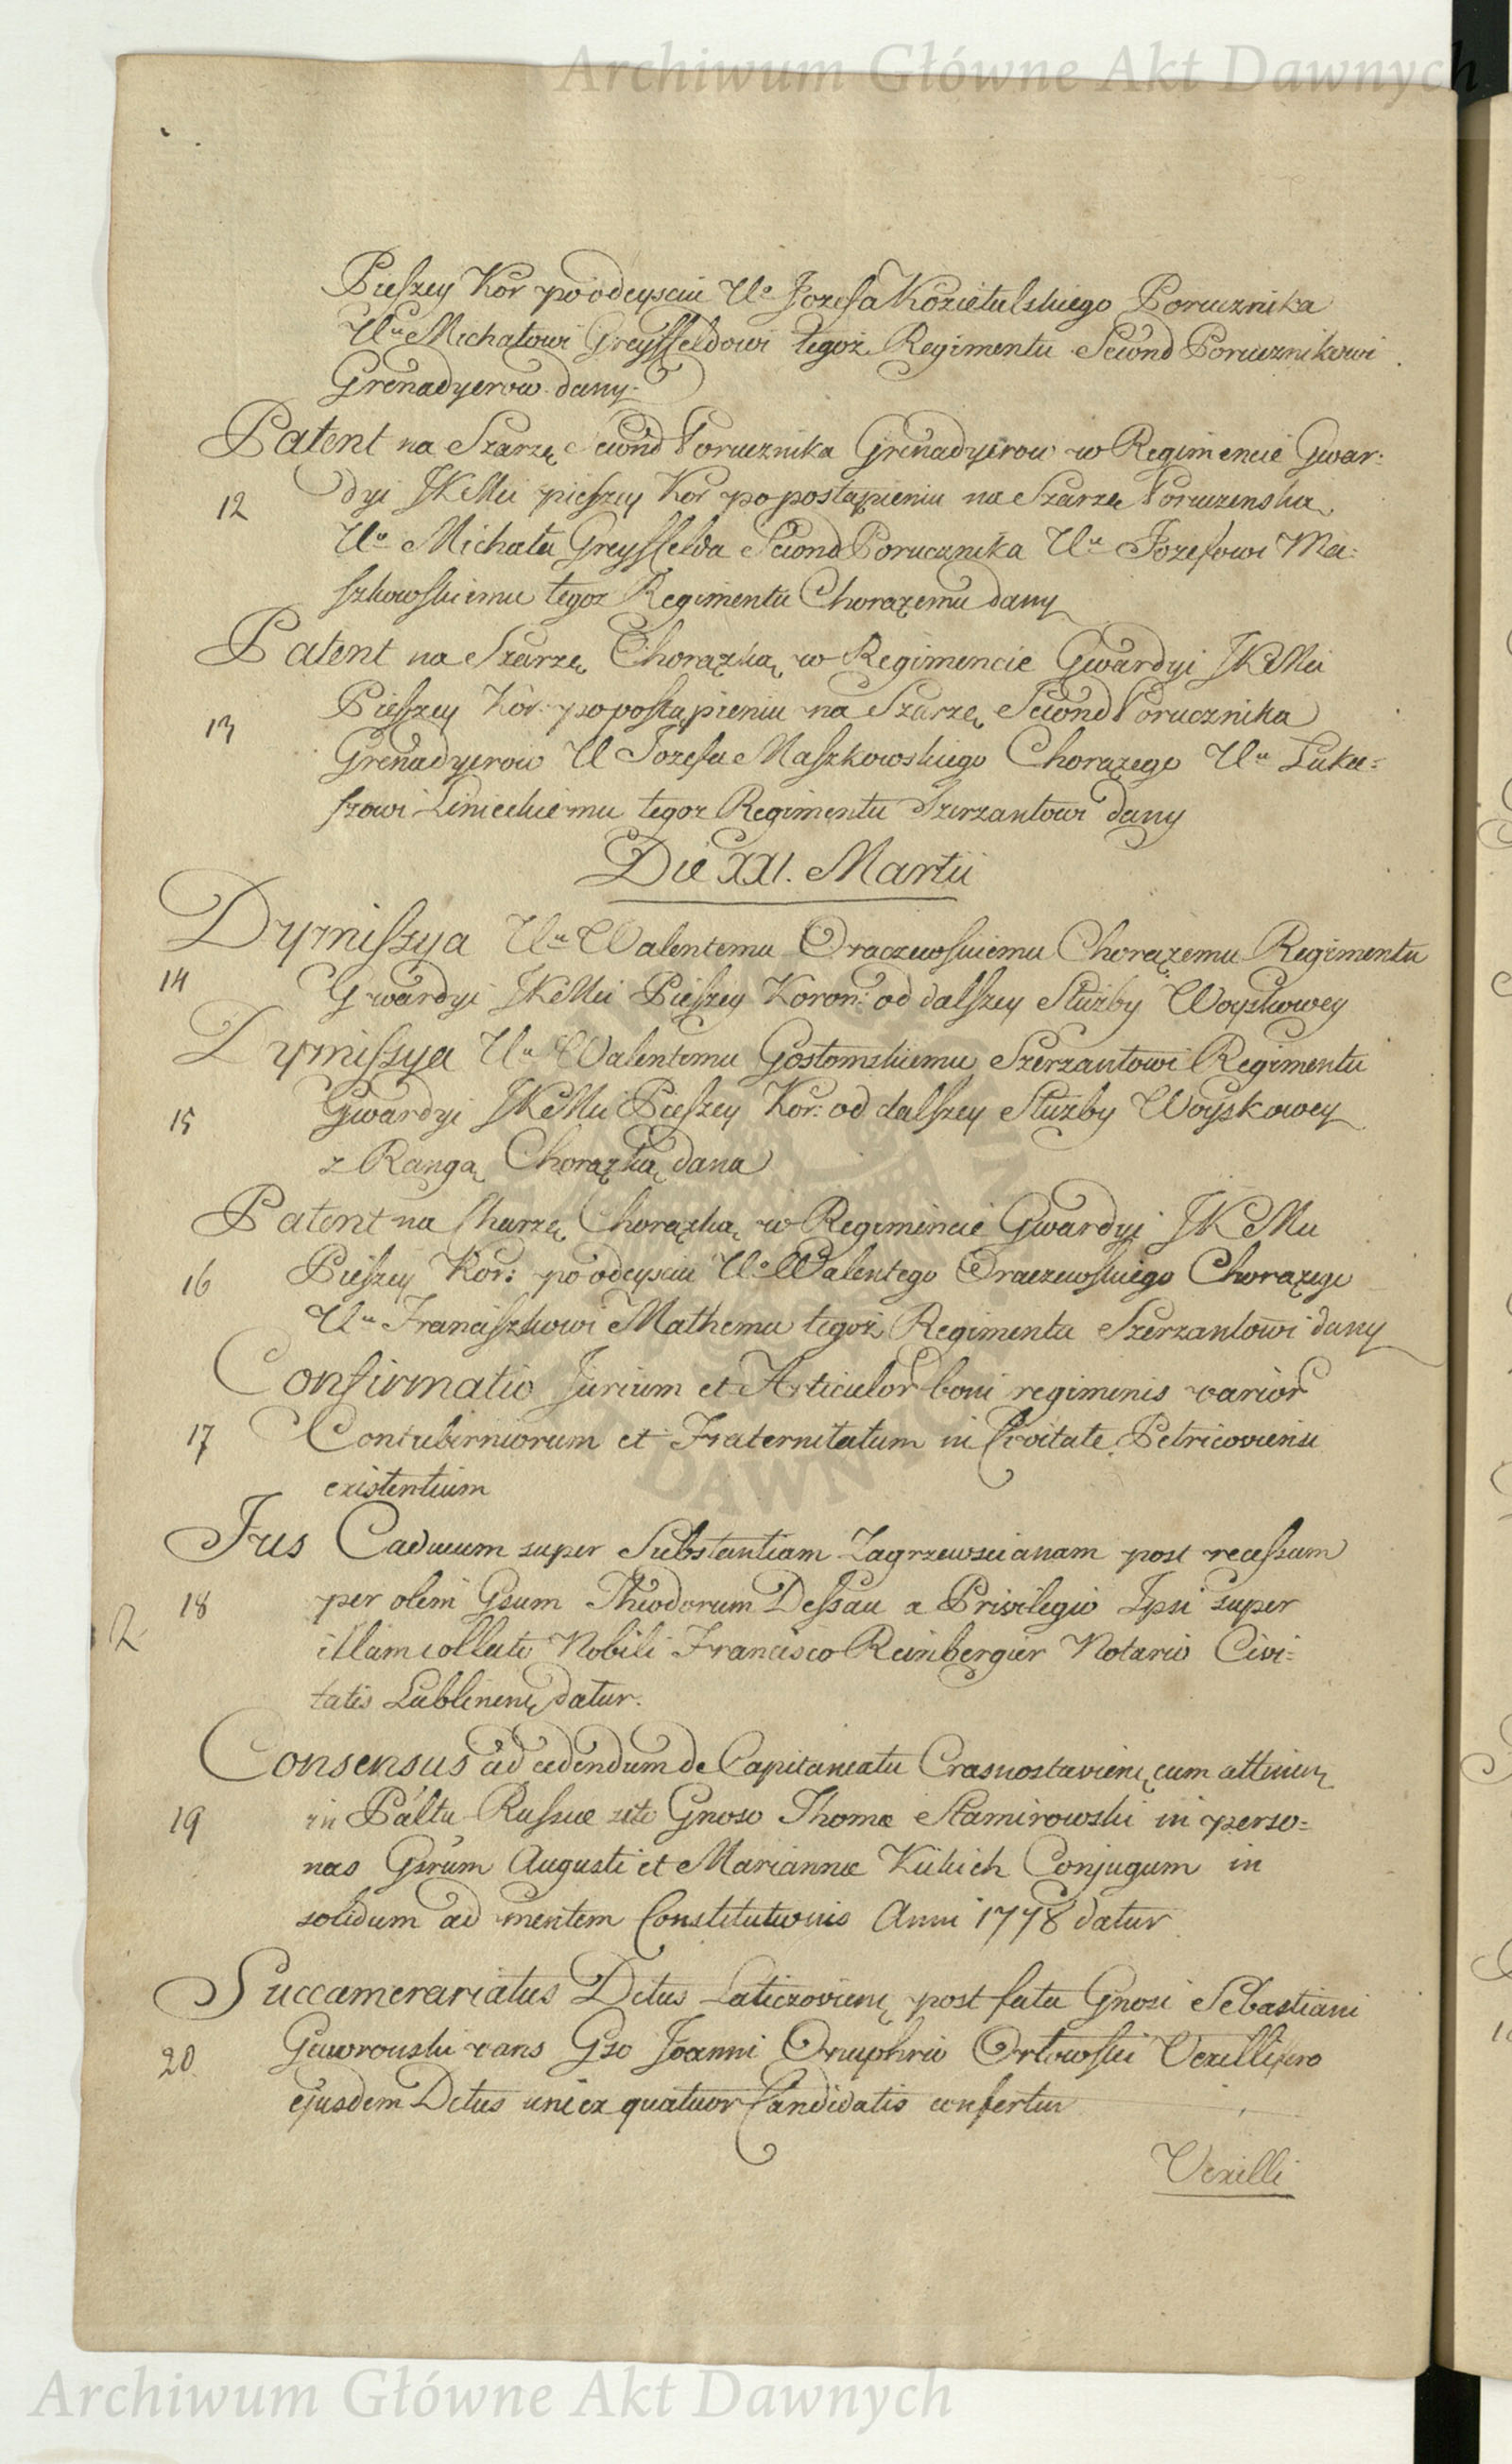 Archiwum Główne Akt Dawnych
Pieszey Kor po odeysciu Uo Jozefa Kozietulskiego Porucznika
Uu Michałowi Greyffeldowi tegoż Regimentu Second Porucznikowi
Grenadyerow dany
Patent na Szarzę Second Porucznika Grenadyerow w Regimencie Gwar:
12 dyi JKMci pieszey Kor po postąpieniu na Szarzę Poruczenską
Uo Michała Greyffelda Second Porucznika Uu Jozefowi Ma:
szkowskiemu tegoz Regimentu Chorązemu dany
Patent na Szarzę Chorązką w Regimencie Gwardyi JKMci
13 Pieszey Kor: po postąpieniu na Szarzę Second Porucznika
Grenadyerow U Jozefa Maszkowskiego Chorązego Uu Luka:
szowi Linieckiemu tegoz Regimentu Szerzantowi dany
Die XXI. Martii
Dymissya Uu Walentemu Draczewskiemu Chorązemu Regimentu
14 Gwardyi JKMci Pieszey Koron: od dalszey Służby Woyskowey
Dymissya Uu Walentemu Gostomskiemu Szerzantowi Regimentu
15 Gwardyi JKMci Pieszey Kor: od dalszey Służby Woyskowey
z Rangą Chorązką dana
Patent na Szarzę Chorązką w Regimencie Gwardyi JKMci
16 Pieszey Kor: po odeysciu Uo Walentego Draczewskiego Chorązego
Uu Franciszkowi Mathemu tegoż Regimentu Szerzantowi dany
Confirmatio Jurium et Articulor boni regiminis varior
17 Contuberniorum et Fraternitatum in Civitate Petricoviensi
existentium
Jus Caducum super Substantiam Zagrzewscianam post recessum
18 per olim Gsum Theodorum Dessau a Privilegio Ipsi super
R
illam collato Nobili Francisco Reinbergier Notario Civi:
tatis Lublinens datur.
Consensus ad cedendum de Capitaneatu Crasnostaviens cum attinen
19 in Paltu Russiæ sito Gnoso Thomæ Stamirowski in perso:
nas Gsrum Augusti et Mariannæ Kickich Conjugum in
solidum ad mentem Constitutionis Anni 1778 datur
Succamerariatus Dctus Laticzoviens post fata Gnosi Sebastiani
20 Gaworowski vans Gso Joanni Onuphrio Orłowski Vexillifero
ejusdem Dctus uni ex quatuor Candidatis confertur
Vexilli
Archiwum Główne Akt Dawnych